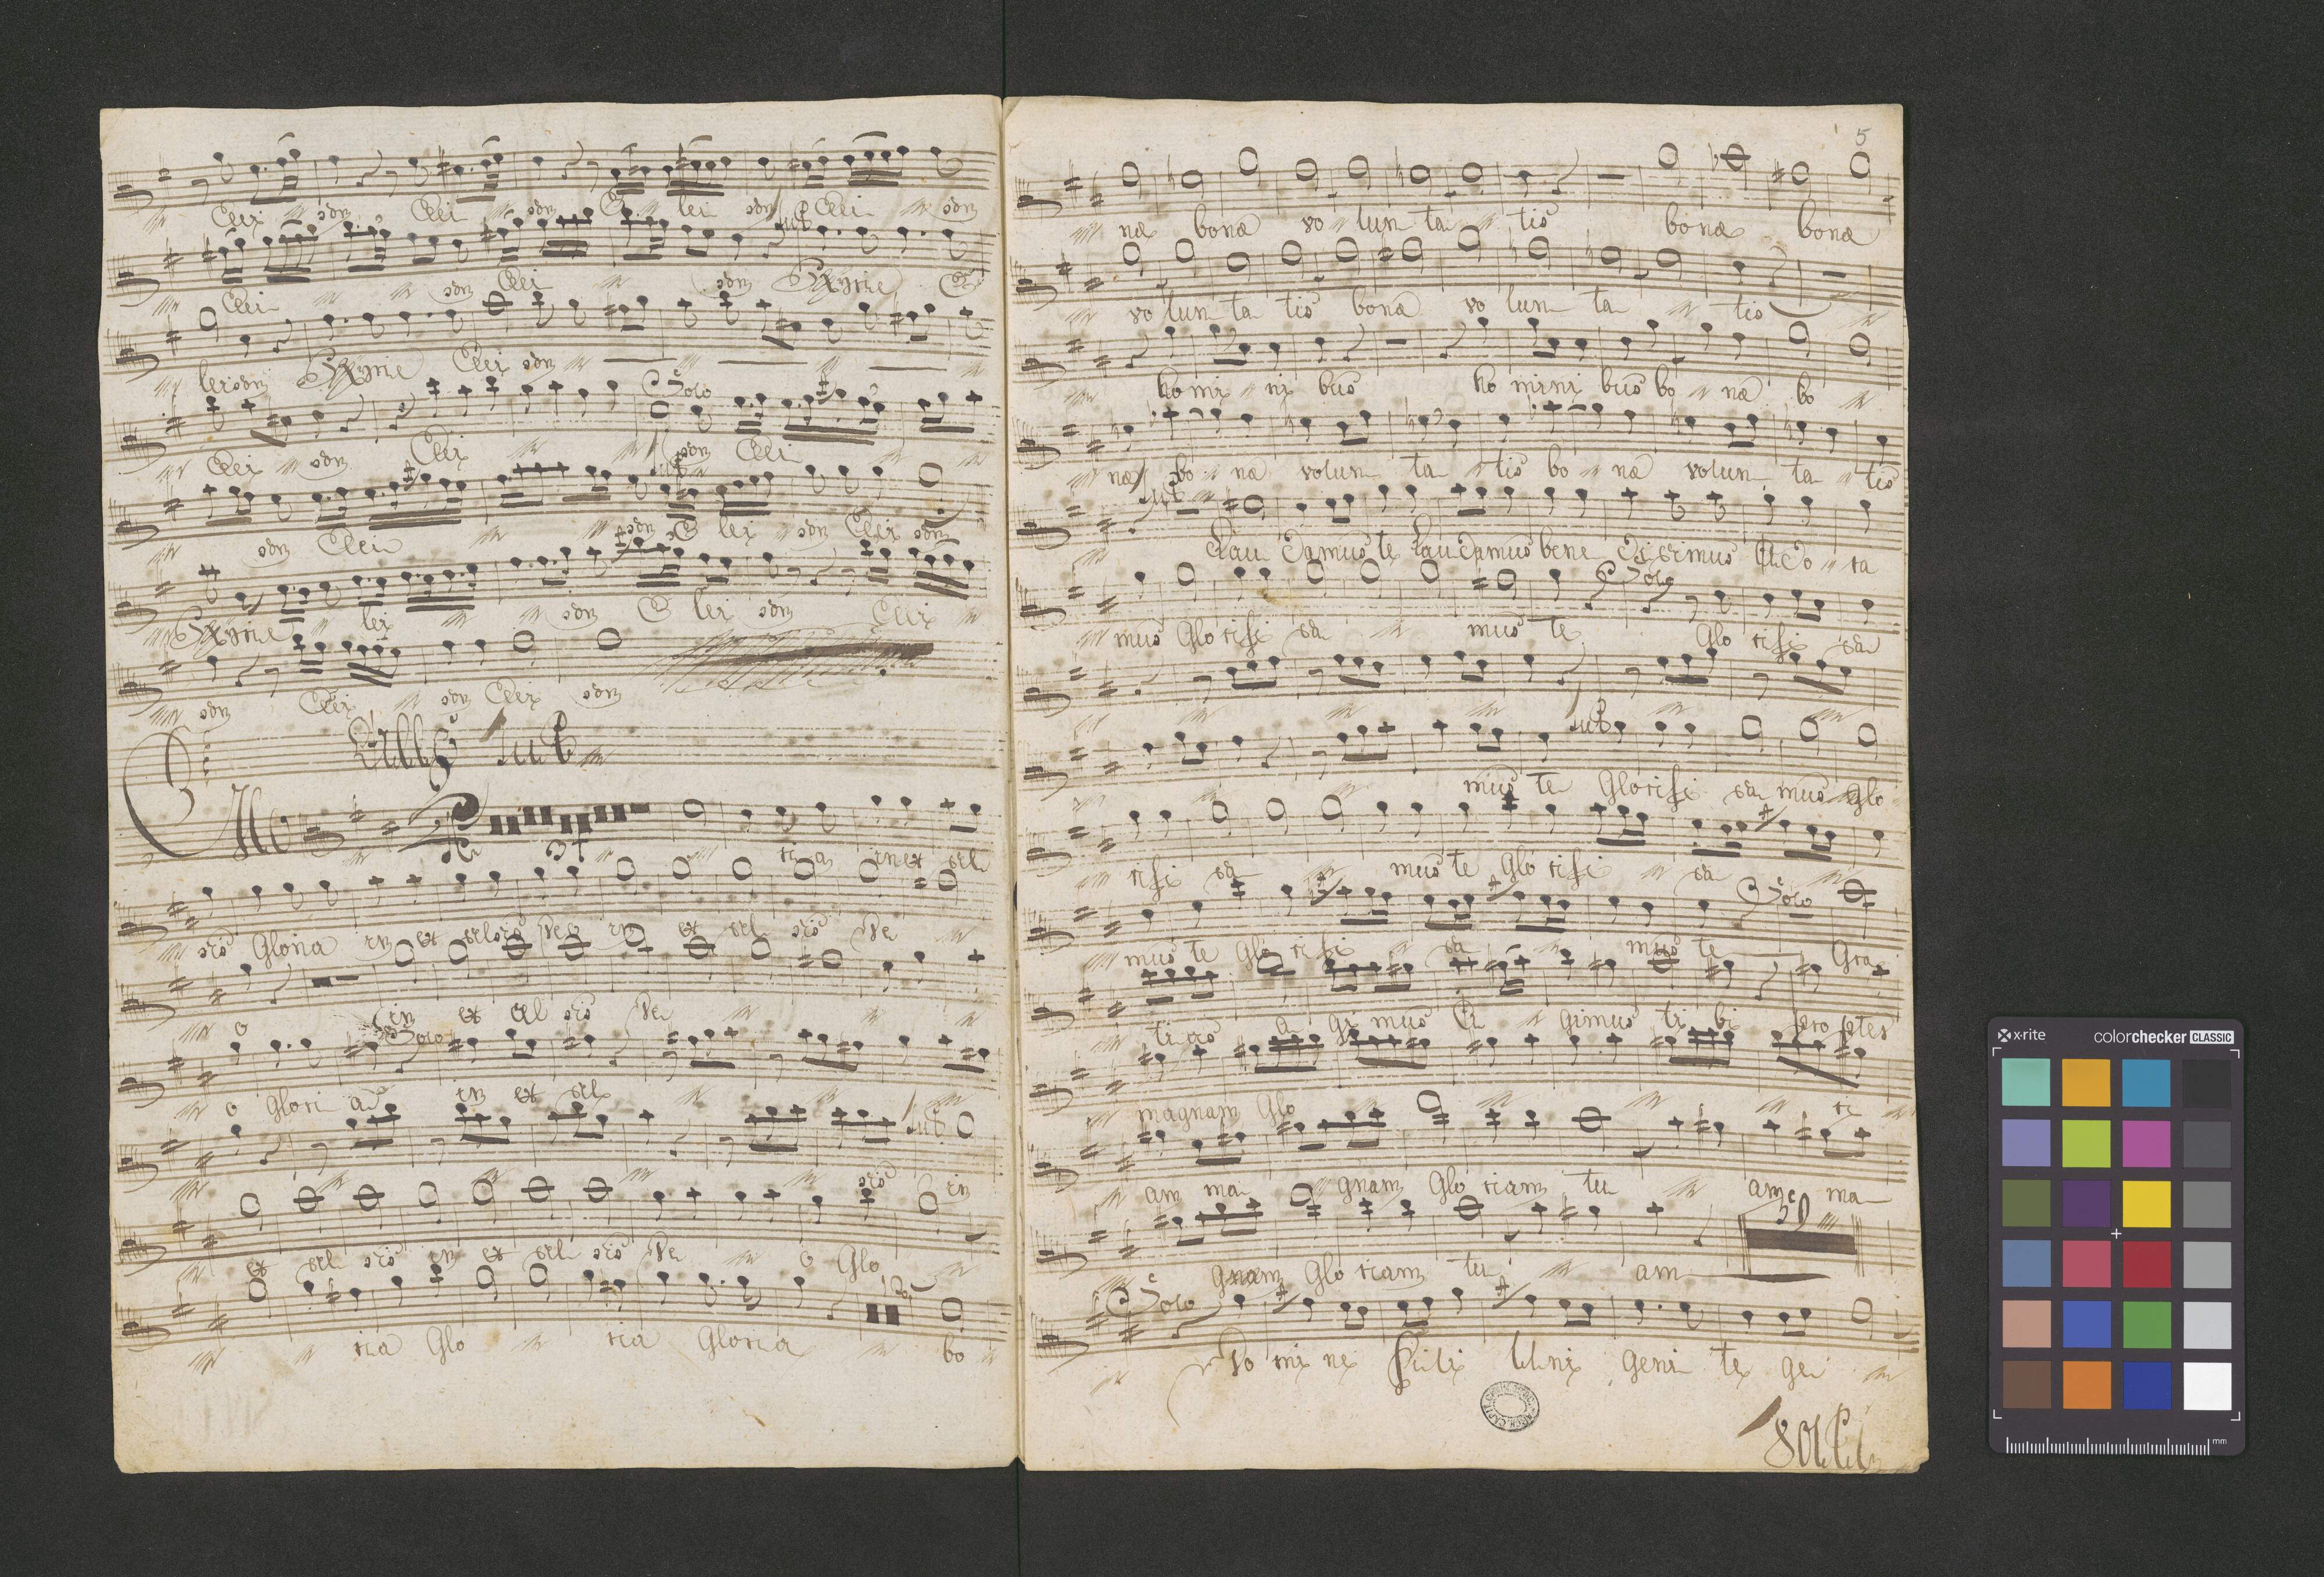 Elei son Elei son E lei son Elei son
Tutt
Elei son Elei son Kyrie E
leison Kyrie Elei son
Solo
Elei son Elei son Elei
Tutt
son Elei son E lei son Elei son
Kyrie E lei son E lei son Elei
son Elei son Elei son
Alleg Tutt
34
ria in ex cel
sis Gloria in ex celsis De in ex cel sis De
o in ex cel sis De
Solo
o Glori a in ex cel
Tutt
sis in
ex cel sis in ex cel sis De o Glo
ria Glo ria Gloria bo
5
næ bonæ vo lun ta tis bonæ bonæ
vo lun ta tis bonæ vo lun ta tis
ho mi ni bus ho mini bus bo næ bo
næ bo næ volun ta tis bo næ volun ta tis
Tutt
Lau damus te Laudamus bene di cimus Ado ra
Solo
mus Glo rifi ca mus te Glo rifi ca
Tutt
mus te Glorifi ca mus Glo
rifi ca mus te Glo rifi ca
Solo
mus te Glo rifi ca mus te Gra
ti as a gi mus A gimus ti bi propter
magnam Glo ri
am ma gnam Glo riam tu am ma
50
gnam Glo riam tu am
Solo
Do mi ne Fili Uni geni te ge
volti
x·rite colorchecker CLASSIC
mm